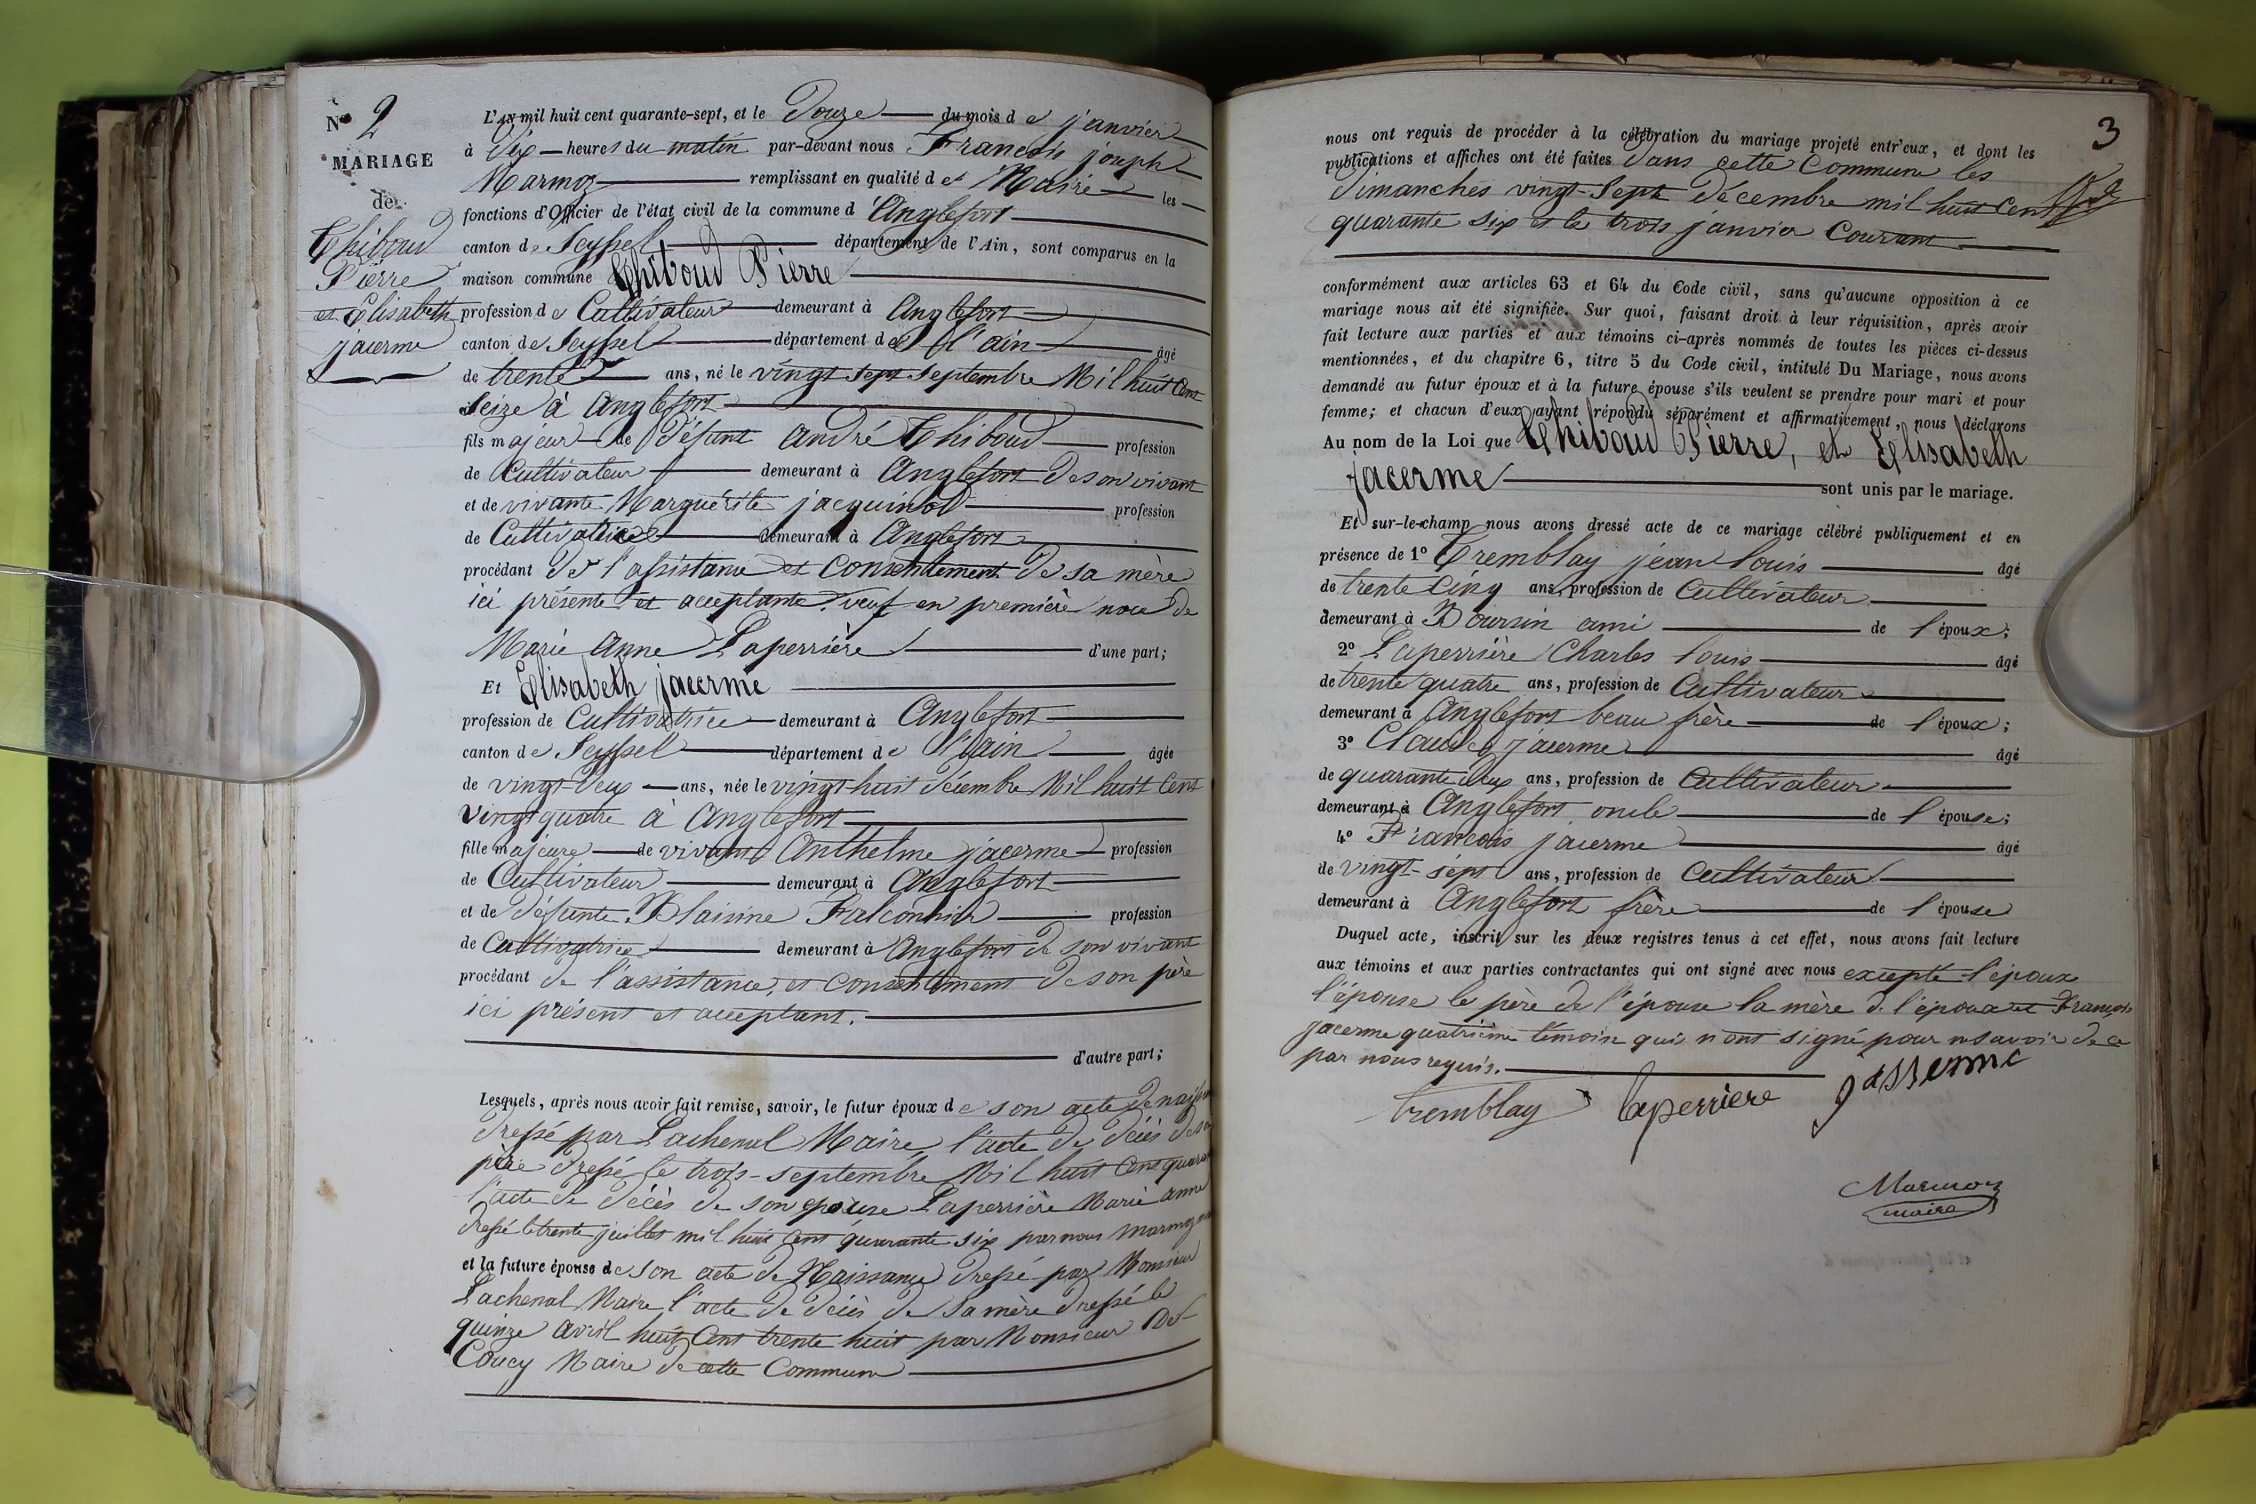 N° 2
MARIAGE
de
Thiboud
Pierre
et Elisabeth
jacerme
L'An mil huit cent quarante-sept, et le Douze du mois de janvier
à Dix heures du matin par-devant nous François joseph
Marmoz remplissant en qualité de Maire les
fonctions d'Officier de l'état civil de la commune d'Anglefort
canton de Seyssel département de l'Ain, sont comparus en la
maison commune Thiboud Pierre
profession de Cultivateur demeurant à Anglefort
canton de Seyssel département de l'ain âgé
de trente ans, né le vingt sept septembre Mil huit Cent
Seize à Anglefort
fils majeur de Défunt andré Thiboud profession
de Cultivateur demeurant à Anglefort De son vivant
et de vivante Marguérite jacquinod profession
de Cultivatrice demeurant à Anglefort
procédant de l'assistance et Consentement De sa mère
ici présente et acceptante. veuf en première noce De
Marie Anne Laperrière d'une part;
Et Elisabeth jacerme
profession de Cultivatrice demeurant à Anglefort
canton de Seyssel département de l'ain âgée
de vingt-Deux ans, née le vingt-huit Décembre Mil huit Cent
Vingt quatre à Anglefort
fille majeure de vivant Anthelme jacerme profession
de Cultivateur demeurant à Anglefort
et de Défunte Blaisine Falconnier profession
de Cultivatrice demeurant à Anglefort De son vivant
procédant de l'assistance, et Consentement De son père
ici présent et acceptant.
d'autre part;
Lesquels, après nous avoir fait remise, savoir, le futur époux de son acte De
Dressé par Lachenal Maire, l'acte De Décès De
père Dressé le trois-septembre Mil huit Cent
l'acte De Décès De son épouse Laperrière Marie Anne
Dressé le trente juillet mil huit Cent quarante six par nous Marmoz
et la future épouse de son acte De Naissance Dressé par Monsieur
Lachenal Maire l'acte De Décès De sa mère Dressé le
quinze avril huit Cent trente huit par Monsieur De
Coucy Maire De cette Commune
3
nous ont requis de procéder à la célébration du mariage projeté entr'eux, et dont les
publications et affiches ont été faites Dans cette Commune les
Dimanches vingt-Sept Décembre mil huit Cent
quarante six et le trois janvier Courant
conformément aux articles 63 et 64 du Code civil, sans qu'aucune opposition à ce
mariage nous ait été signifiée. Sur quoi, faisant droit à leur réquisition, après avoir
fait lecture aux parties et aux témoins ci-après nommés de toutes les pièces ci-dessus
mentionnées, et du chapitre 6, titre 5 du Code civil, intitulé Du Mariage, nous avons
demandé au futur époux et à la future épouse s'ils veulent se prendre pour mari et pour
femme; et chacun d'eux ayant répondu séparément et affirmativement, nous déclarons
Au nom de la Loi que Thiboud Pierre, et Elisabeth
jacerme sont unis par le mariage.
Et sur-le-champ nous avons dressé acte de ce mariage célébré publiquement et en
présence de 1° Tremblay jean louis âgé
de trente Cinq ans, profession de Cultivateur
demeurant à Boursin ami de l'époux;
2° Laperrière Charles louis âgé
de trente quatre ans, profession de Cultivateur
demeurant à Anglefort beau frère de l'époux;
3° Claude jacerme âgé
de quarante deux ans, profession de Cultivateur
demeurant à Anglefort oncle de l'épouse;
4° Francois jacerme âgé
de vingt-sept ans, profession de Cultivateur
demeurant à Anglefort frère de l'épouse
Duquel acte, inscrit sur les deux registres tenus à cet effet, nous avons fait lecture
aux témoins et aux parties contractantes qui ont signé avec nous excepté l'époux
l'épouse le père De l'épouse la mère De l'époux et François
jacerme quatrième témoin qui n'ont signé pour ne savoir De ce
par nous requis.
Tremblay laperriere jasserme
Marmoz
maire